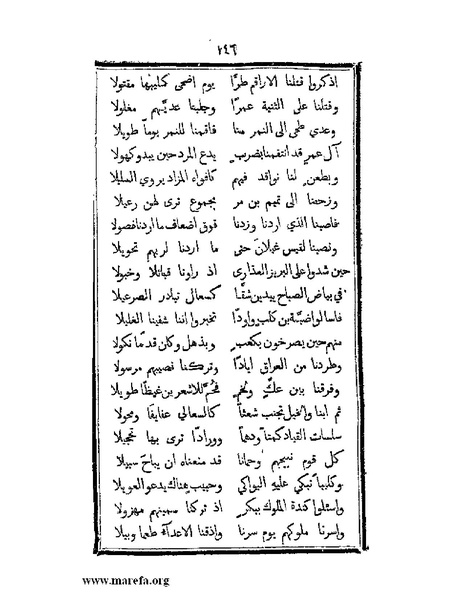 ٢٤٦
اذكروا قتلنا الاراقم طرًّا يوم اضحى كليبها مقتولا
وقتلنا على الثنية عمرًا وجلبنا عديَّهم مغلولا
وعدي طحى الى النمر منا فاقمنا للنمر يوماً طويلا
آل عمرٍ قد انتقمنا بضربٍ يدع المرد حين يبدو كهولا
وبطعنٍ لنا نواقد فيهم كافواه المزاد يروي السليلا
وزحفنا الى تميم بن مر بجموع ترى لهن رعيلا
فاصبنا الذي اردنا وزدنا فوق اضعاف ما اردنا فصولا
ونصبنا لقيس غيلان حتى ما اردنا لربهم تحويلا
حين شدوا على البريز العذارى اذ راونا قبائلا وخيولا
في بياض الصباح يبدين شقًّا كسعال تبادر الصرعيلا
فاسالوا ضبَّة بن كلب واودًا تخبروا اننا شفينا الغليلا
منهم حين يصرخون بكعبٍ وبذهل وكان قدمًا نكولا
وطردنا من العراق ايادًا وتركنا نصيبهم مرسولا
وفرقنا بين عكٍّ ولخمٍ للاشعر بن غيظًا طويلا
ثم ابنا والخيل تجنب شعثًا كالسعالي عفايفًا ومحولا
سلسات القياد كمتًا ودهمًا وورادًا ترى بها تحجيلا
كل قوم نبيحهم وحمانا قد منعناه ان يباح سبيلا
وكليبًا تبكي عليه البواكي وحبيب هناك يدعو العويلا
واسئلوا كندة الملوك ببكرٍ اذ تركنا سمينهم مهزولا
واسرنا ملوكهم يوم سرنا واذقنا الاعداءَ طعما وبيلا
www.marefa.org